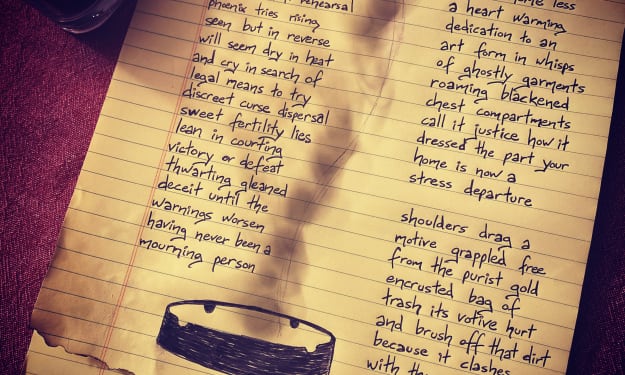 rehearsal
phoenix tries rising
seen but in reverse
will seem dry in heat
and cry in search of
legal means to try
discreet curse dispersal
sweet fertility lies
lean in courting
victory or defeat
thwarting gleaned
deceit until the
warnings worsen
having never been a
mourning person
less
a heart warming
dedication to an
art form in whisps
of ghostly garments
roaming blackened
chest compartments
call it justice how it
dressed the part your
home is now a
stress departure
shoulders drag a
motive grappled free
from the purist gold
encrusted bag of
trash its votive hurt
and brush off that dirt
because it clashes
with